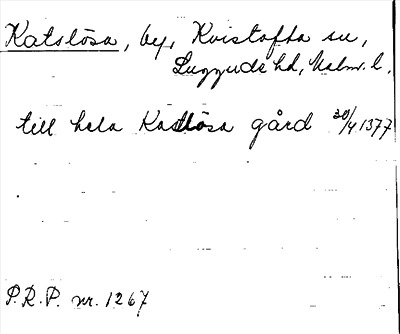 Katslösa, by, Kvistofta sn,
Luggude hd, Malm. l.
till hela Kadlösa gård 20/4 1377
P.R.P. nr. 1267